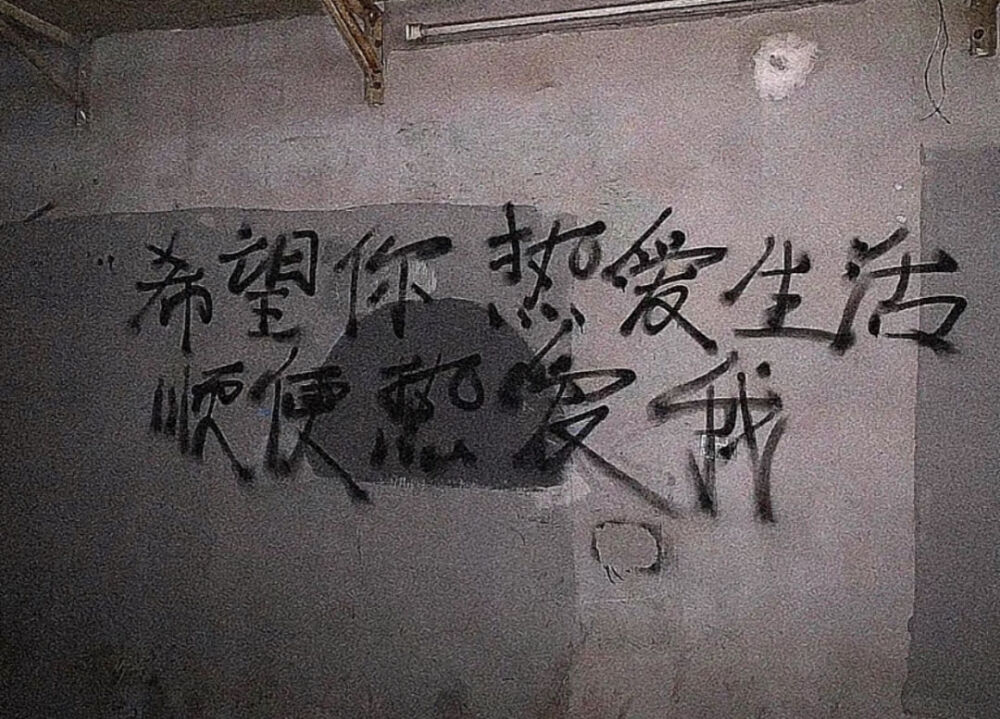 希望你热爱生活
顺便热爱我